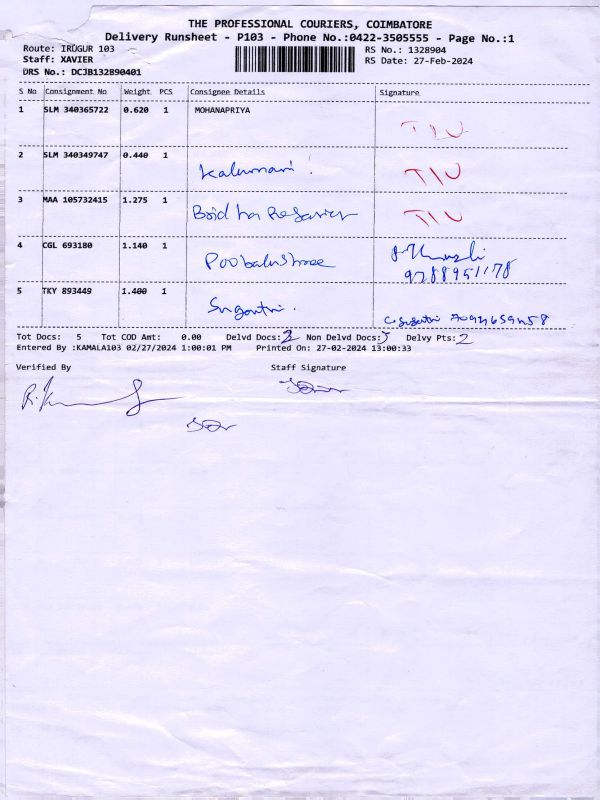 THE PROFESSIONAL COURIERS, COIMBATORE
Delivery Runsheet - P103 - Phone No.:0422-3505555 - Page No.:1
Route: IRUGUR 103
RS No.: 1328904
Staff: XAVIER
RS Date: 27-Feb-2024
DRS No.: DCJB132890401
S No Consignment No Weight PCS Consignee Details Signature
1 SLM 340365722 0.620 1 MOHANAPRIYA TIU
2 SLM 340349747 0.440 1 TIU
3 MAA 105732415 1.275 1 TIU
4 CGL 693180 1.140 1 Poobalushree
9288951178
5 TKY 893449 1.400 1
Tot Docs: 5 Tot COD Amt: 0.00 Delvd Docs: Non Delvd Docs: Delvy Pts: 2
Entered By :KAMALA103 02/27/2024 1:00:01 PM Printed On: 27-02-2024 13:00:33
Verified By Staff Signature